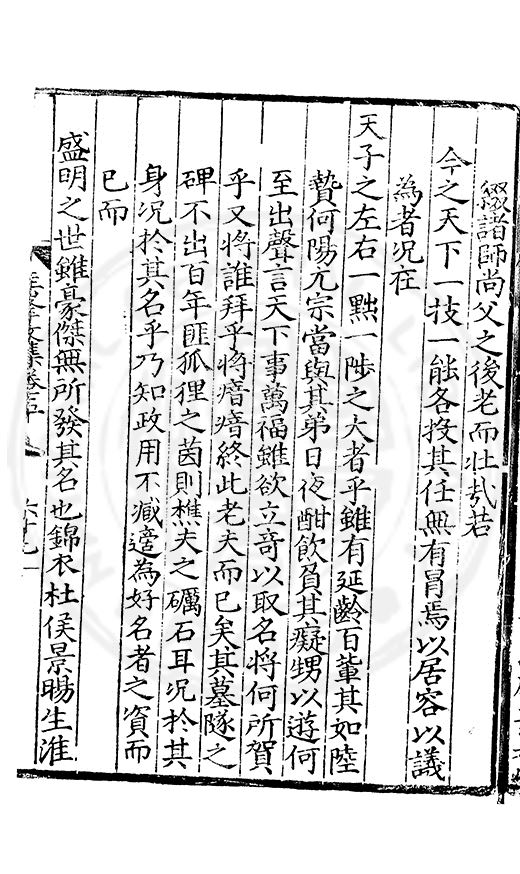 綴諸師尚父之後老而壯哉若
今之天下一技一能各投其任無有冒焉以居容以議
為者况在
天子之左右一黜一陟之大者乎雖有延齡百輩其如陸
贄何陽亢宗當與其弟日夜酣飲負其癡甥以遊何
至出聲言天下事萬福雖欲立竒以取名将何所賀
乎又将誰拜乎将瘖瘖終此老夫而已矣其墓隧之
碑不出百年匪狐狸之茵則樵夫之礪石耳况於其
身况於其名乎乃知政用不減適為好名者之資而
已而
盛明之世雖豪傑無所發其名也錦衣杜侯景暘生淮